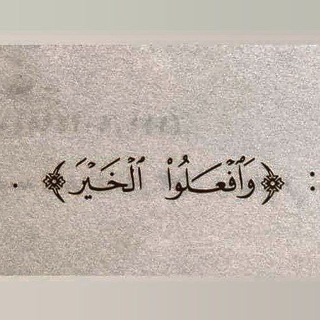 : ﴿وَٱفۡعَلُواْ ٱلۡخَيۡرَ﴾ .